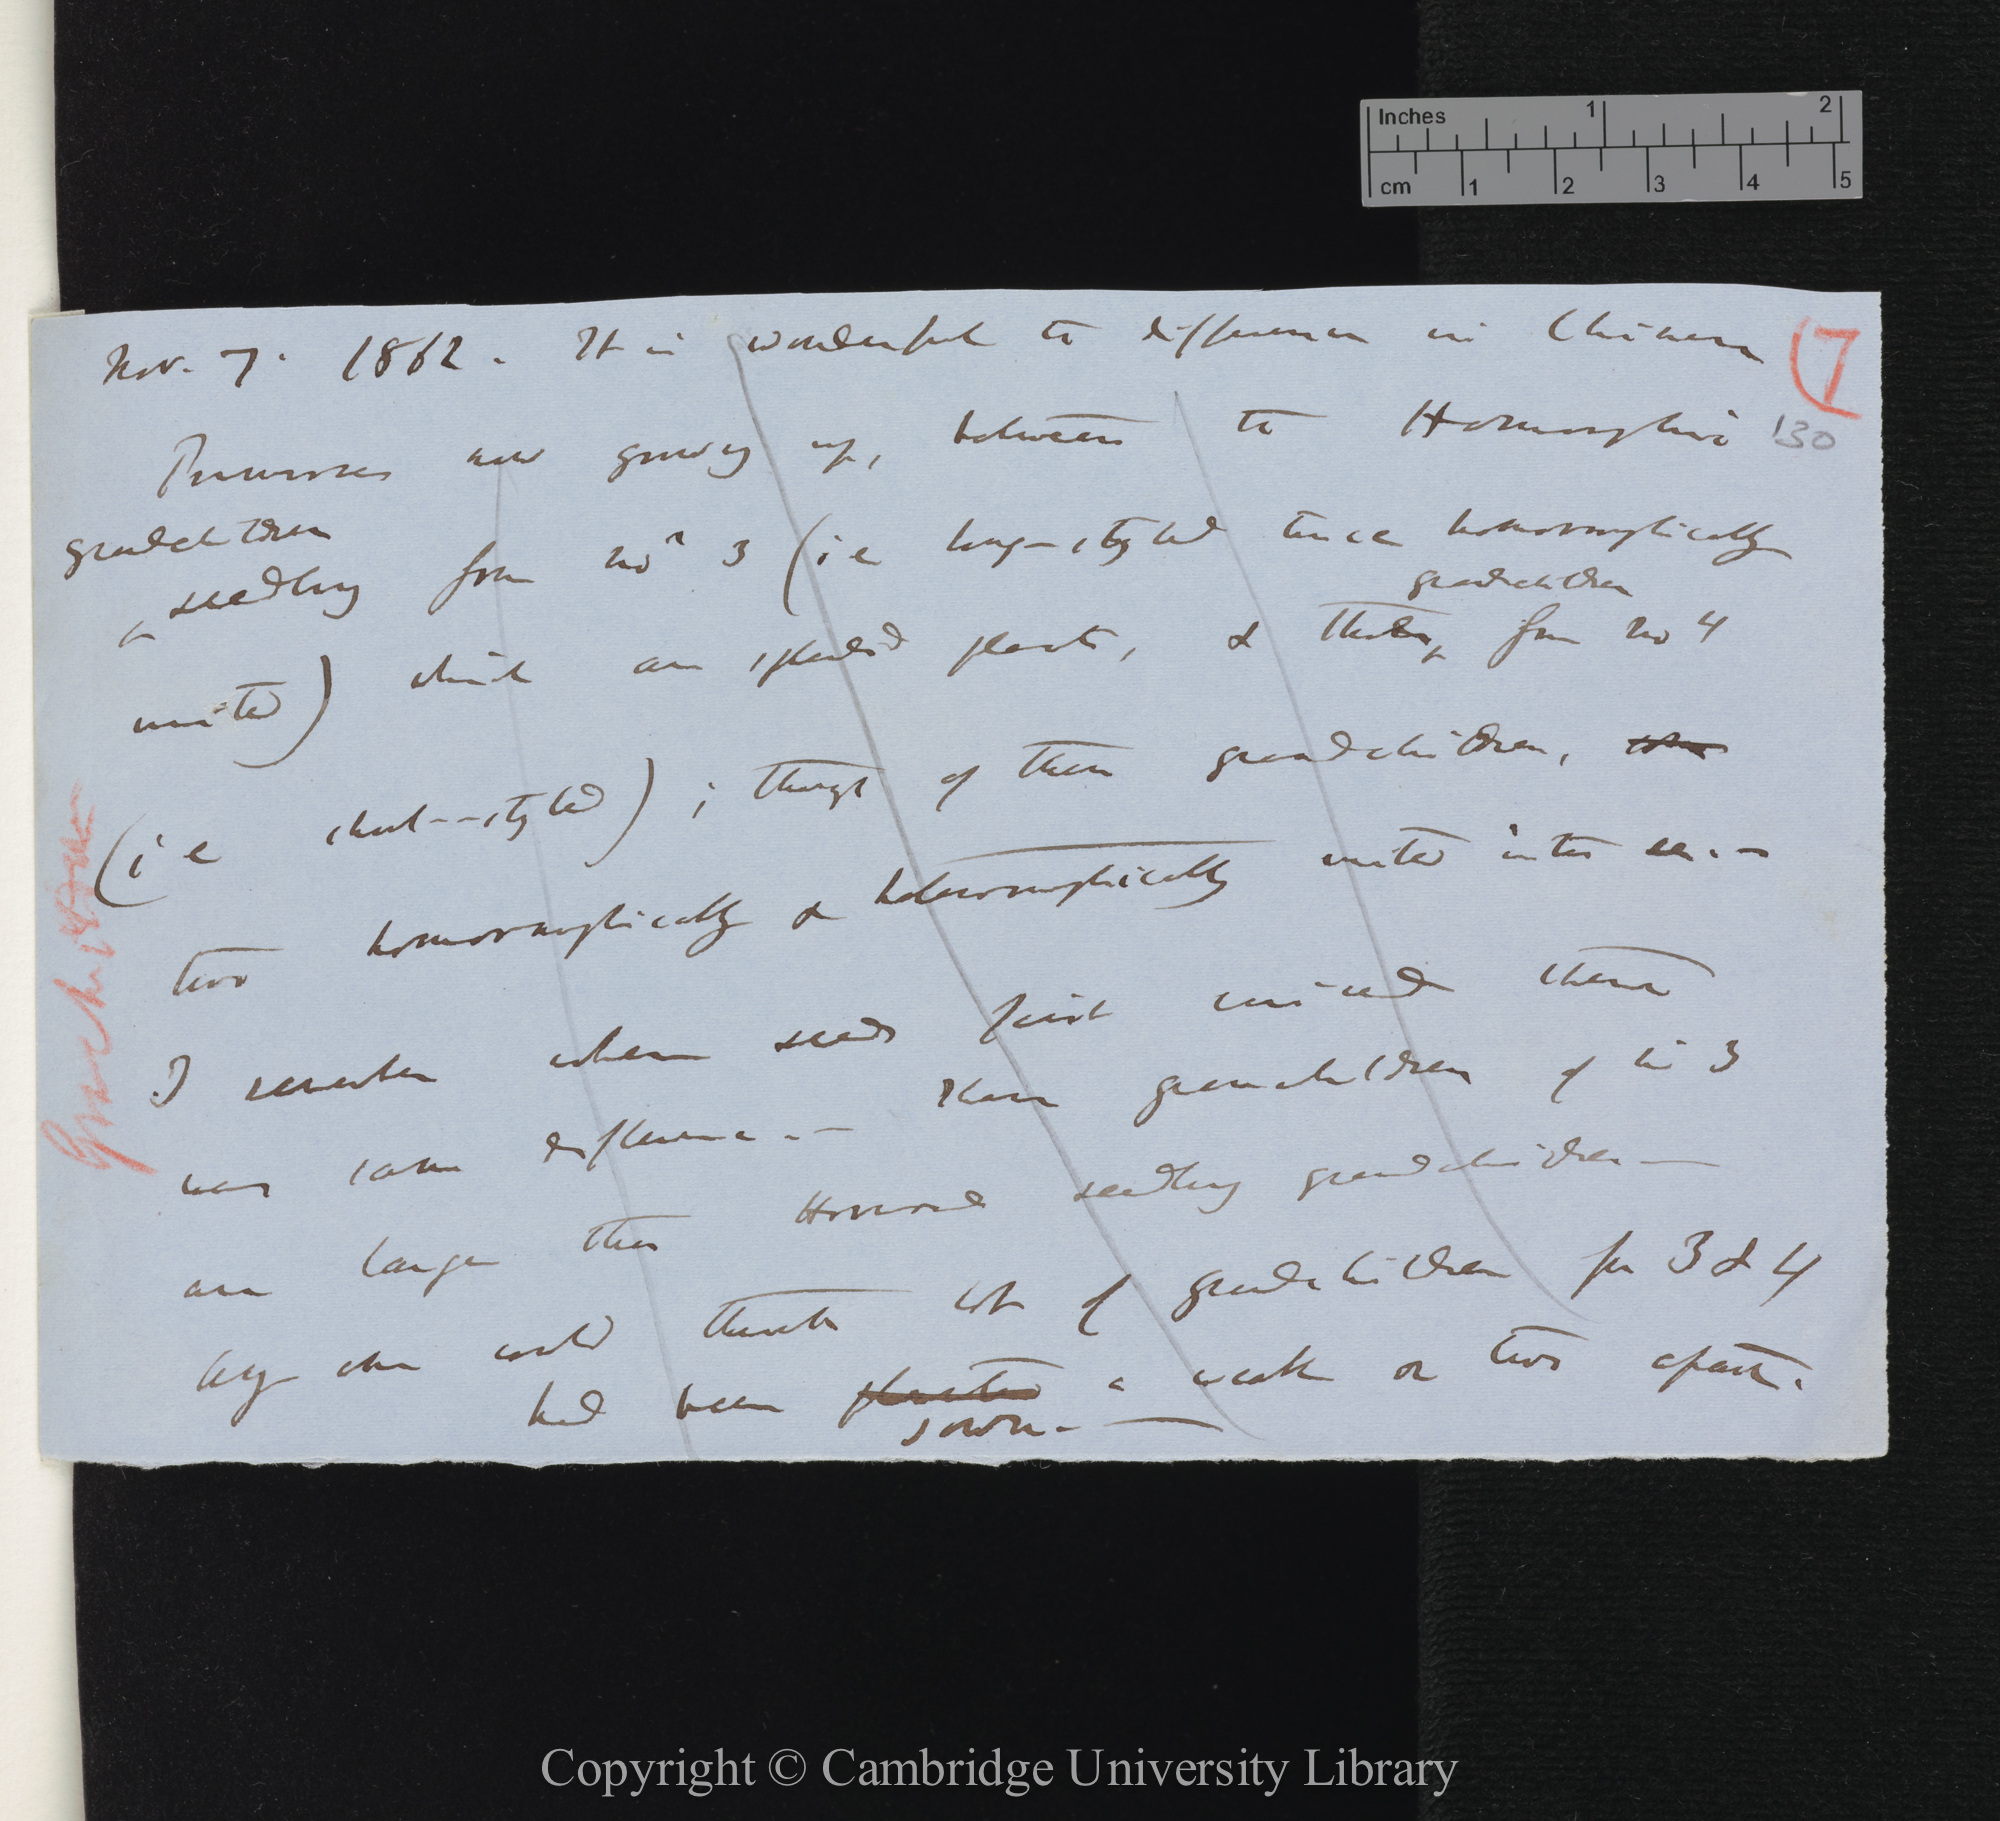 Inches 1 2
cm 1 2 3 4 5
Nov. 7. 1862. It is wonderful the difference in Chinese
(7
Primroses now growing up, between the Homomorphic
130
grandchildren
seedlings from no 3 (i e long-styled twice homomorphically
grandchildren
united) which are splendid plants, & those from no 4
(i e short-styled); though of these grandchildren,
two homomorphically & heteromorphically united inter se.—
I remember when seeds first raised there
was same difference.— These grandchildren of no 3
are larger than seedling grandchildren—
Any one would think lot of grandchildren for 3 & 4
had been planted a week or two apart.
sown.—
Grandchildren
Copyright © Cambridge University Library